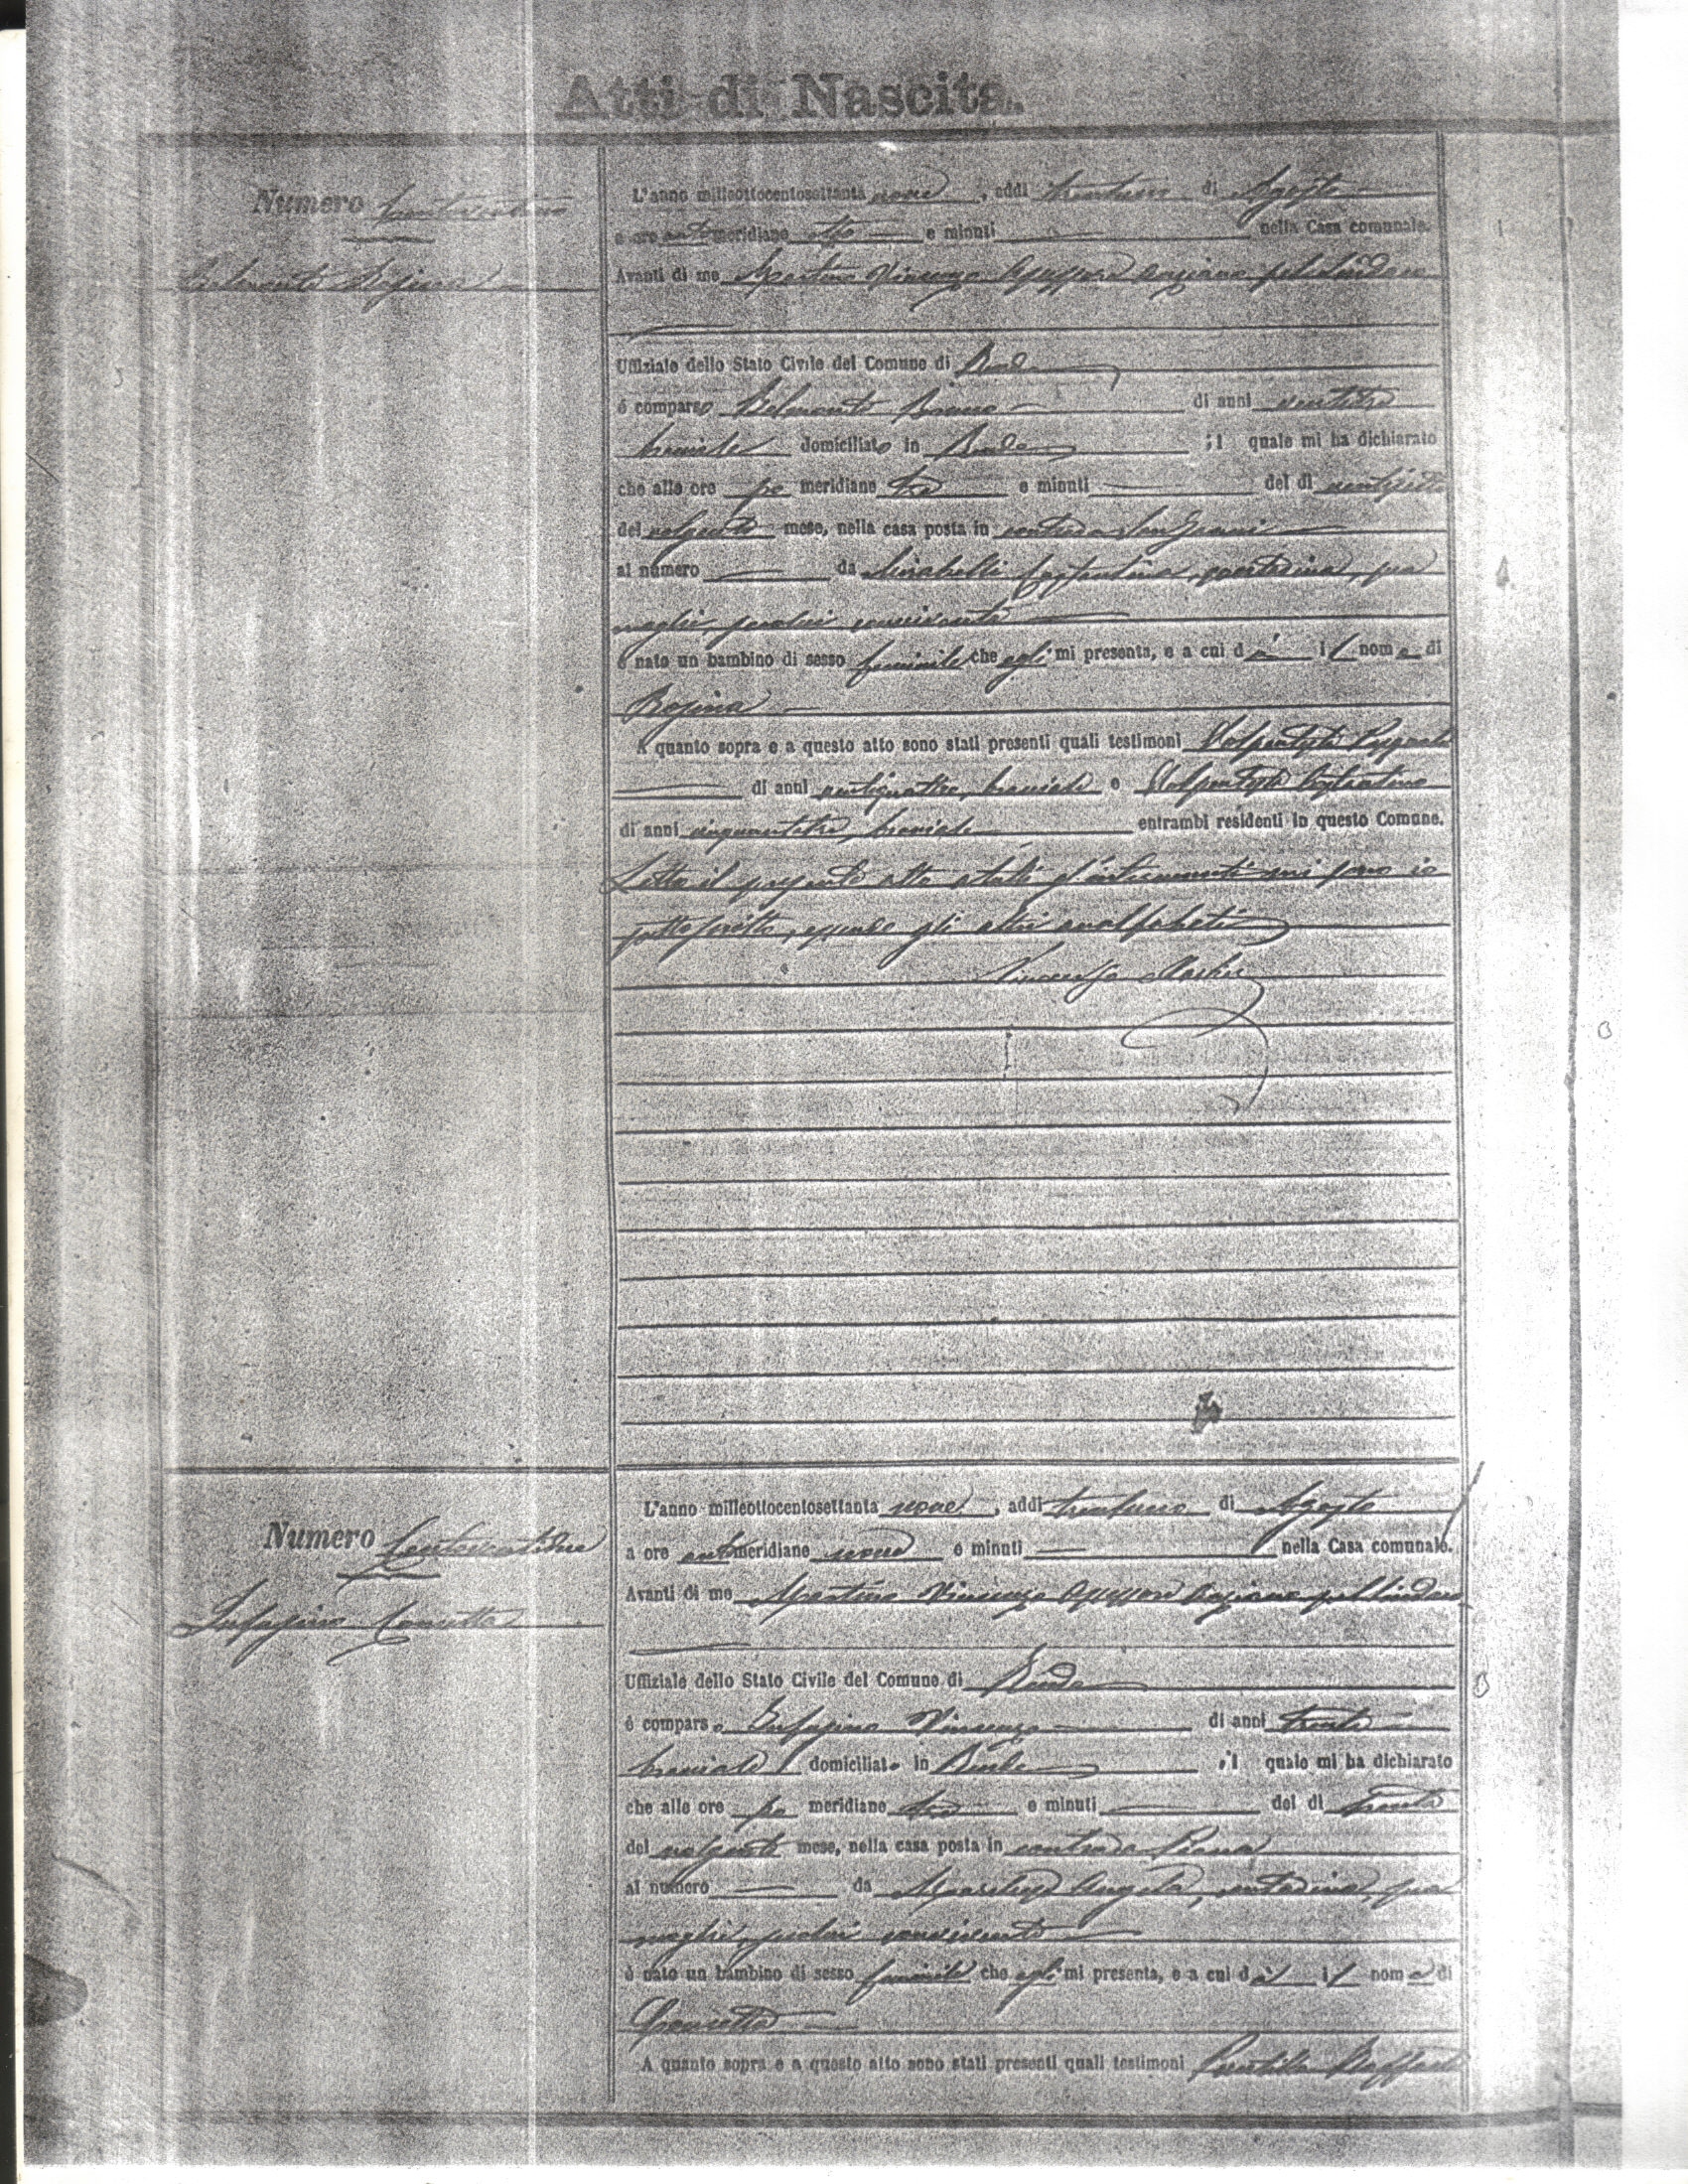 Atti di Nascita.
Numero
Belmonte Rosina
L'anno milleottocentosettanta nove, addì trentuno di Agosto
a ore antimeridiane otto e minuti nella Casa comunale.
Avanti di me Martino Vincenzo Assessore Anziano pel Sindaco
Uffiziale dello Stato Civile del Comune di Rende
è comparso Belmonte di anni ventitre
bracciale domiciliato in Rende il quale mi ha dichiarato
che alle ore po meridiane tre e minuti del dì
del volgente mese, nella casa posta in contrada
al numero da Mirabelli Costantina, contadina, sua
moglie, seco lui convivente
è nato un bambino di sesso feminile che egli mi presenta, e a cui dà il nome di
Rosina
A quanto sopra e a questo atto sono stati presenti quali testimoni Volpentesta
di anni ventiquattro, bracciale e Volpentesta
di anni cinquantatre, bracciale entrambi residenti in questo Comune.
Letto il presente atto a tutti gl'intervenuti mi sono io
sottoscritto, essendo gli altri analfabeti
Vincenzo Martino
Numero
Infusino Concetta
L'anno milleottocentosettanta nove, addì trentuno di Agosto
a ore antimeridiane nove e minuti nella Casa comunale.
Avanti di me Martino Vincenzo Assessore Anziano pel Sindaco
Uffiziale dello Stato Civile del Comune di Rende
è comparso Infusino Vincenzo di anni trenta
bracciale domiciliato in Rende il quale mi ha dichiarato
che alle ore po meridiane tre e minuti del dì trenta
del volgente mese, nella casa posta in contrada Piana
al numero da Angela, contadina, sua
moglie, seco lui convivente
è nato un bambino di sesso feminile che egli mi presenta, e a cui dà il nome di
Concetta
A quanto sopra e a questo atto sono stati presenti quali testimoni Raffaele